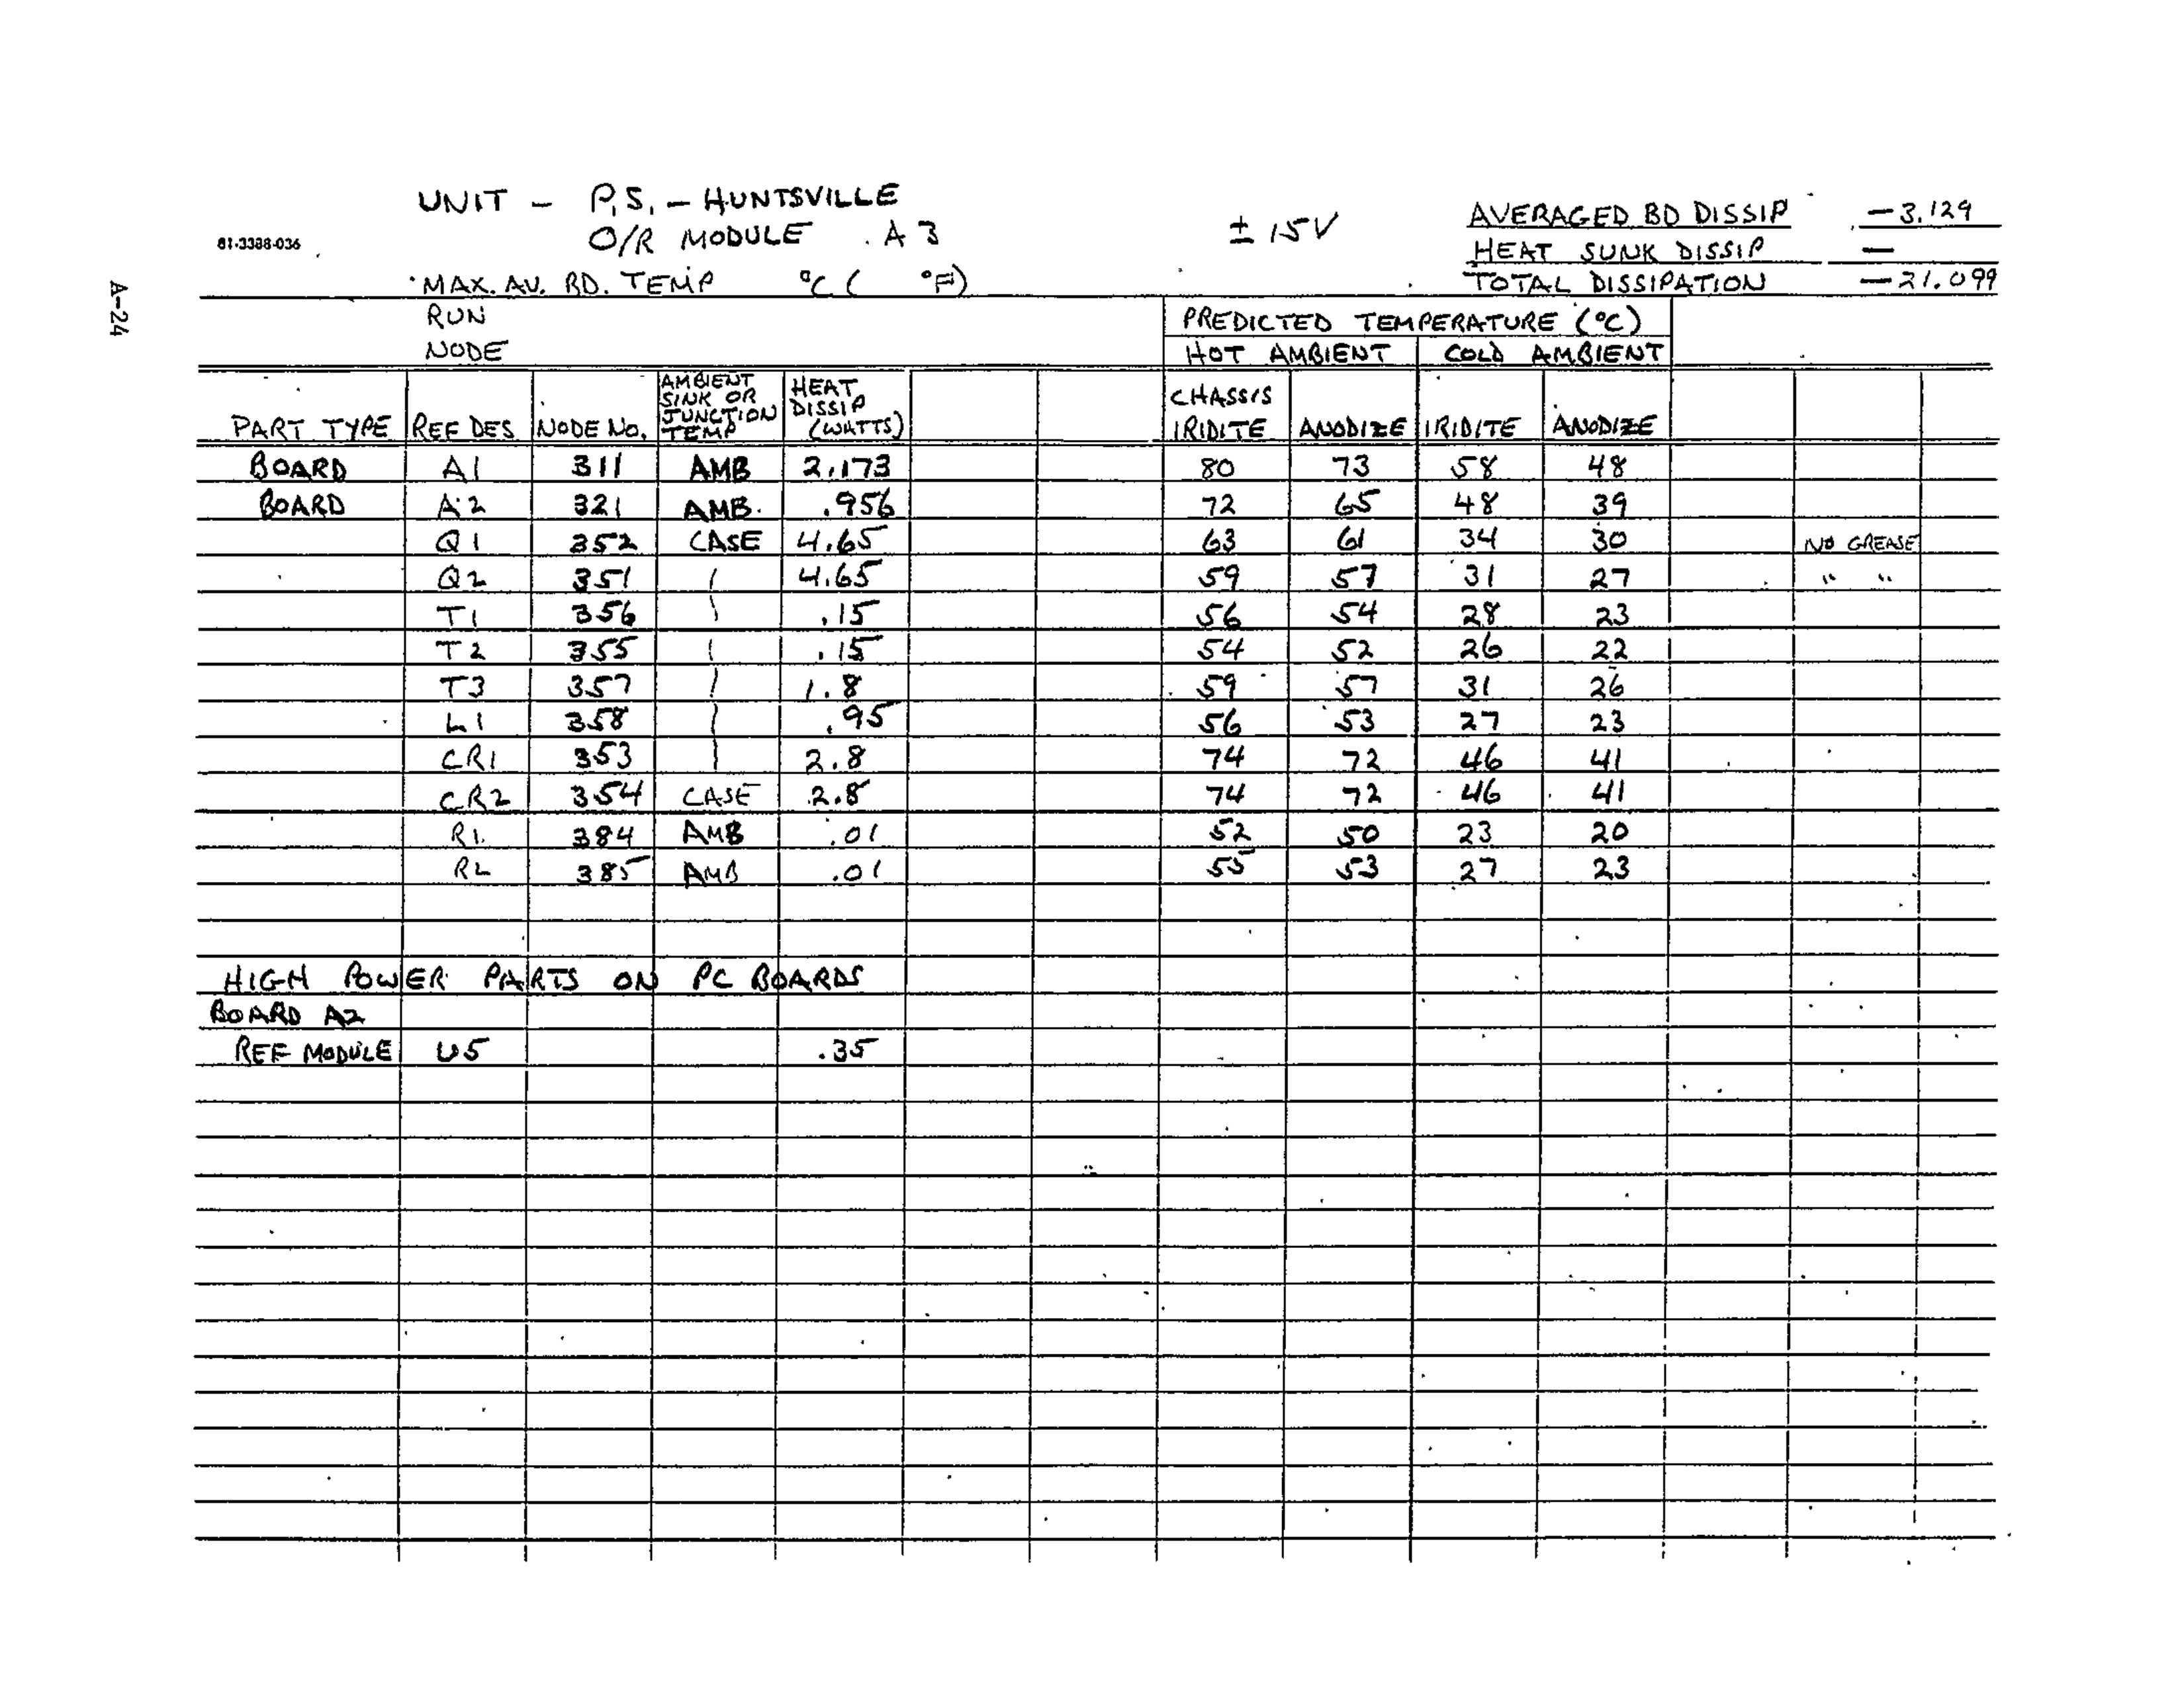 UNIT - P.S. - HUNTSVILLE
81-3388-036 O/R MODULE A3 ± 15V
AVERAGED BD DISSIP - 3.129
HEAT SUNK DISSIP -
MAX. AV. BD. TEMP °C ( °F) TOTAL DISSIPATION - 21.099
A-24
RUN PREDICTED TEMPERATURE (°C)
NODE HOT AMBIENT COLD AMBIENT
PART TYPE REF DES NODE NO. AMBIENT SINK OR JUNCTION TEMP HEAT DISSIP (WATTS) CHASSIS IRIDITE ANODIZE IRIDITE ANODIZE
BOARD A1 311 AMB 2.173 80 73 58 48
BOARD A2 321 AMB. .956 72 65 48 39
Q1 352 CASE 4.65 63 61 34 30 NO GREASE
Q2 351 | 4.65 59 57 31 27 " "
T1 356 | .15 56 54 28 23
T2 355 | .15 54 52 26 22
T3 357 | 1.8 59 57 31 26
L1 358 | .95 56 53 27 23
CR1 353 | 2.8 74 72 46 41
CR2 354 CASE 2.8 74 72 46 41
R1 384 AMB .01 52 50 23 20
R2 385 AMB .01 55 53 27 23
HIGH POWER PARTS ON PC BOARDS
BOARD A2
REF MODULE U5 .35